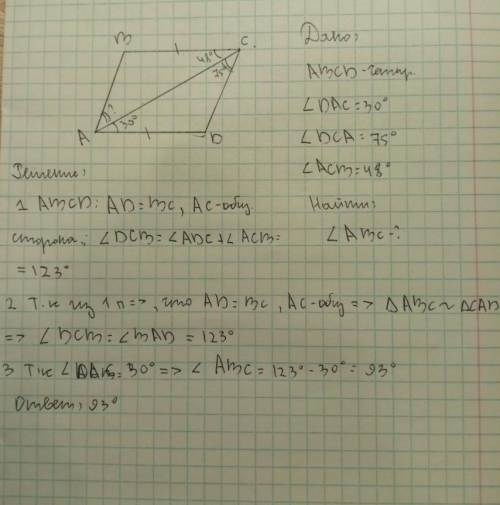 B
C.
48°
75°
A
?
30°
D
Дано:
ABCD - четыр.
∠DAC = 30°
∠DCA = 75°
∠ACB = 48°
Найти:
∠ABC - ?
Решение:
1 ABCD: AD = BC, AC - общ.
сторона; ∠DCB = ∠ADC + ∠ACB =
= 123°
2 Т.к из 1 п =>, что AD = BC, AC - общ => ΔABC ~ ΔCAD
=> ∠DCB = ∠BAD = 123°
3 Т.к ∠ = 30° => ∠ ABC = 123° - 30° = 93°
Ответ: 93°